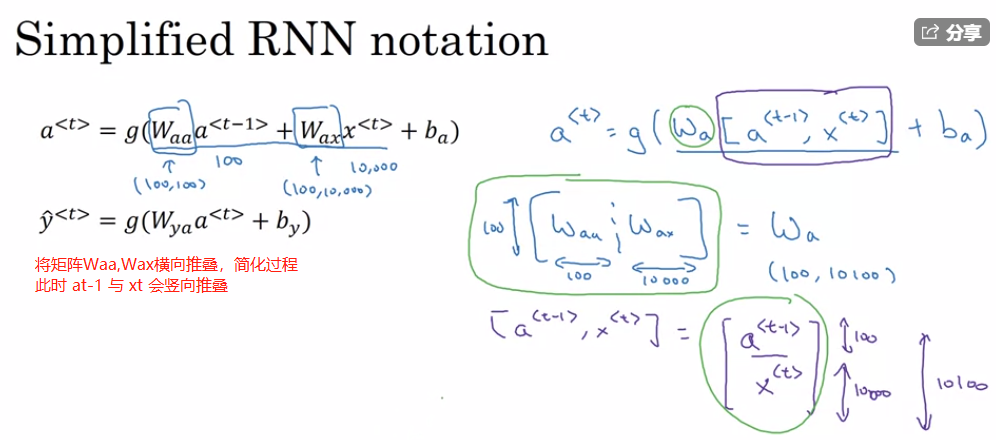 Simplified RNN notation
分享
a<t> = g(Waa a<t−1> + Wax x<t> + ba)
100
10,000
(100,100)
(100,10,000)
ŷ<t> = g(Wya a<t> + by)
将矩阵Waa,Wax横向推叠，简化过程
此时 at-1 与 xt 会竖向推叠
a<t> = g(Wa [a<t-1>, x<t>] + ba)
100 [Waa ; Wax] = Wa
100 10000
(100, 10100)
[a<t-1>, x<t>] = [a<t-1>
x<t>]
100
10000
10100